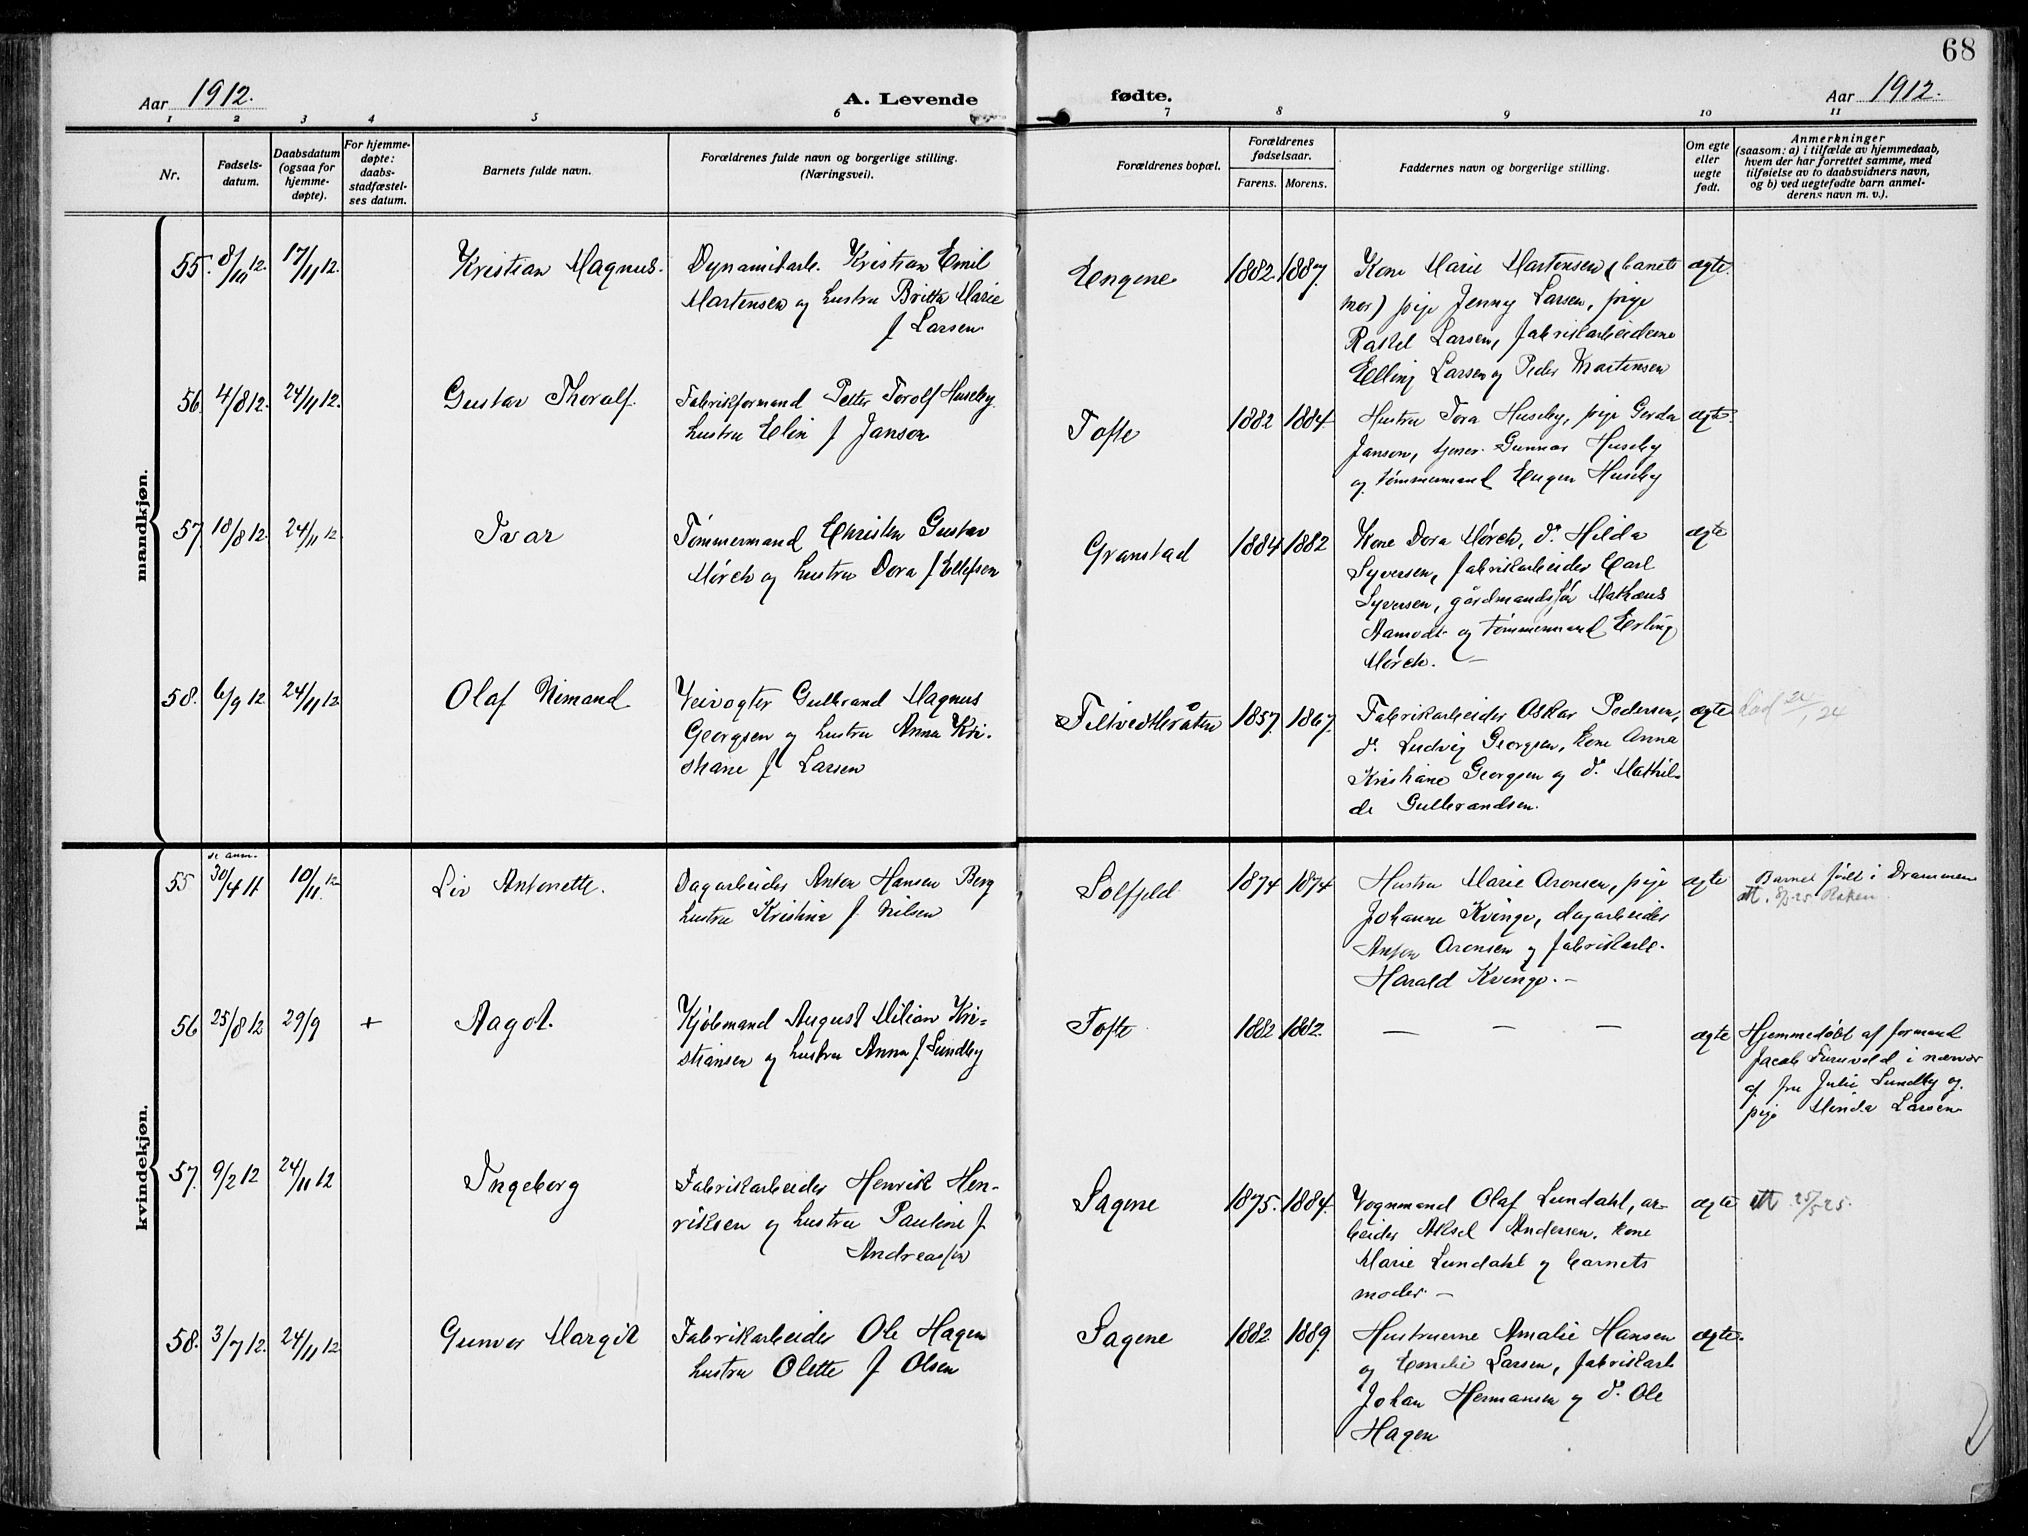 68
Aar 1912.
A. Levende
fødte.
Aar 1912.
1 2 3 4 5 6 7 8 9 10 11
Nr.
Fødsels-
datum.
Daabsdatum
(ogsaa for
hjemme-
døpte).
For hjemme-
døpte:
daabs-
stadfæstel-
ses datum.
Barnets fulde navn.
Forældrenes fulde navn og borgerlige stilling.
(Næringsvei).
Forældrenes bopæl.
Forældrenes
fødselsaar.
Farens. Morens.
Faddernes navn og borgerlige stilling.
Om egte
eller
uegte
født.
Anmerkninger
(saasom: a) i tilfælde av hjemmedaab,
hvem der har forrettet samme, med
tilføielse av to daabsvidners navn,
og b) ved uegtefødte barn anmel-
derens navn m. v.).
mandkjøn.
55. 8/10 12. 17/11 12. Kristian Magnus.
Dynamitarb. Kristian Emil
Martensen og hustru Britta Marie
f Larsen
Engene 1882. 1887.
Kone Marie Martensen (barnets
mor) pige Jenny Larsen, pige
Rakel Larsen, fabrikarbeiderne
Elling Larsen og Peder Martensen
ægte.
56. 4/8 12. 24/11 12. Gustav Thoralf.
Fabrikformand Petter Torolf Huseby.
hustru Elin f Janson
Tofte 1882 1884.
Hustru Tora Huseby, pige Gerda
Janson, tjener Gunnar Huseby
og tømmermand Eugen Huseby
ægte.
57. 18/8 12. 24/11 12. Ivar
Tømmermand Christen Gustav
Mørch og hustru Dora f. Ellefsen
Granstad 1884 1882
Kone Dora Mørch, do Hilda
Syversen, fabrikarbeider Carl
Syversen, gårdmandssøn Mathæus
Aamodt og tømmermand Erling
Mørch. —
ægte
58. 6/9 12. 24/11 12 Olaf Nimand
Veivogter Gulbrand Magnus
Georgsen og hustru Anna Kri-
stiane f Larsen
Filtvedtbråten 1857. 1867.
Fabrikarbeider Oskar Pedersen,
do. Ludvig Georgsen, kone Anna
Kristiane Georgsen og do. Mathil-
de Gulbrandsen.
ægte 24/1 24
kvindekjøn.
se anm.
55 30/4 11 10/11 12 Liv Antonette.
Dagarbeider Anton Hansen Berg
hustru Kristine f. Nilsen
Solfjeld 1874 1874
Hustru Marie Aronsen, pige
Johanne Kvinge, dagarbeider
Anton Aronsen og fabrikarb.
Harald Kvinge. —
ægte
Barnet født i Drammen
Att. 8/5 25
56 25/8 12 29/9 + Aagot.
Kjøbmand August Milian Kri-
stiansen og hustru Anna f. Sundby
Tofte 1882 1882.
— — —
ægte
Hjemmedøbt af formand
Jacob Furuvold i nærvær
af fru Julie Sundby og
pige Minda Larsen
57. 9/2 12 24/11 12 Ingeborg
Fabrikarbeider Henrik Hen-
riksen og hustru Pauline f.
Andreassen
Sagene 1875. 1884.
Vognmand Olaf Lundahl, ar-
beider Aksel Andersen, kone
Marie Lundahl og barnets
moder —
ægte Att 25/5 25.
58. 3/7 12. 24/11 12 Gunvor Margit
Fabrikarbeider Ole Hagen
hustru Olette f Olsen
Sagene 1882. 1889.
Hustruerne Amalie Hansen
og Emilie Larsen, fabrikarb
Johan Hermansen og do. Ole
Hagen
ægte.